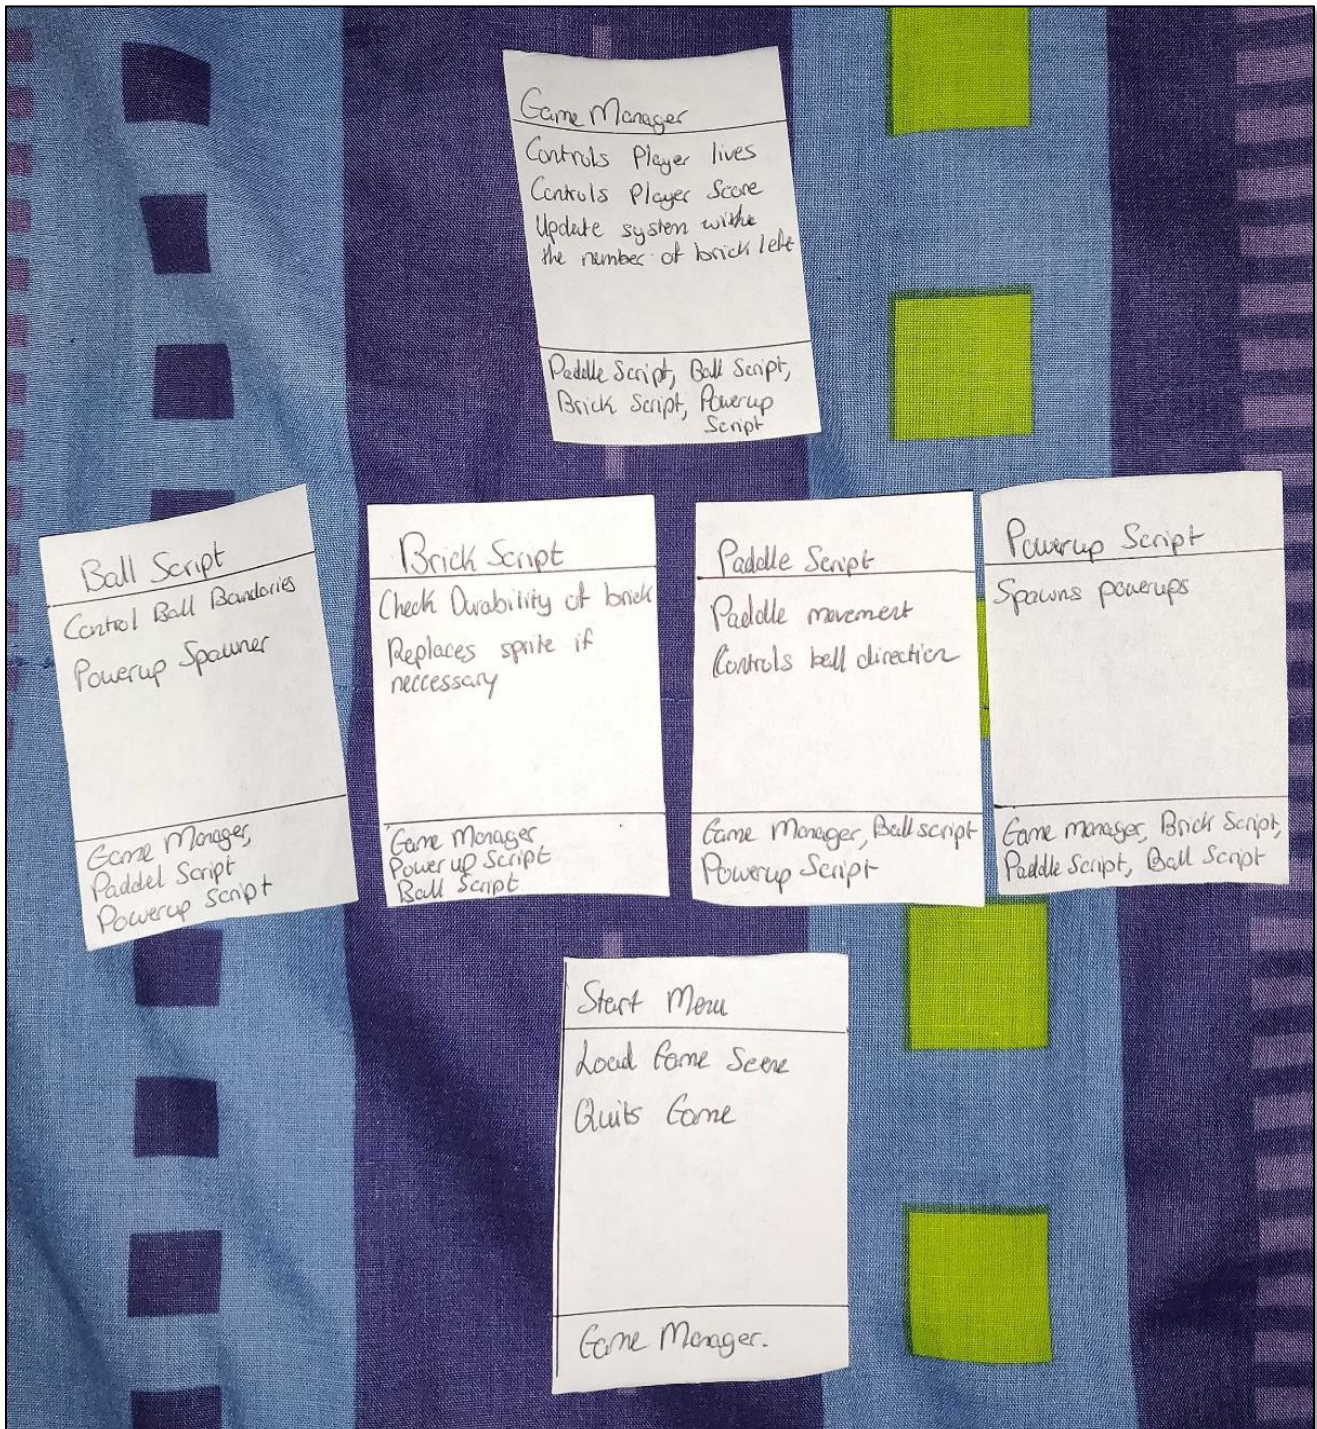 Game Manager
Controls Player lives
Controls Player Score
Update system withe
the number of brick left
Paddle Script, Ball Script,
Brick Script, Powerup
Script
Ball Script
Control Ball Bandories
Powerup Spawner
Game Manager,
Paddel Script
Powerup Script
Brick Script
Check Durability of brick
Replaces sprite if
neccessary
Game Manager
Power up Script
Ball Script
Paddle Script
Paddle movement
Controls ball direction
Game Manager, Ball script
Powerup Script
Powerup Script
Spawns powerups
Game manager, Brick Script,
Paddle Script, Ball Script
Start Menu
Load Game Scene
Quits Game
Game Manager.